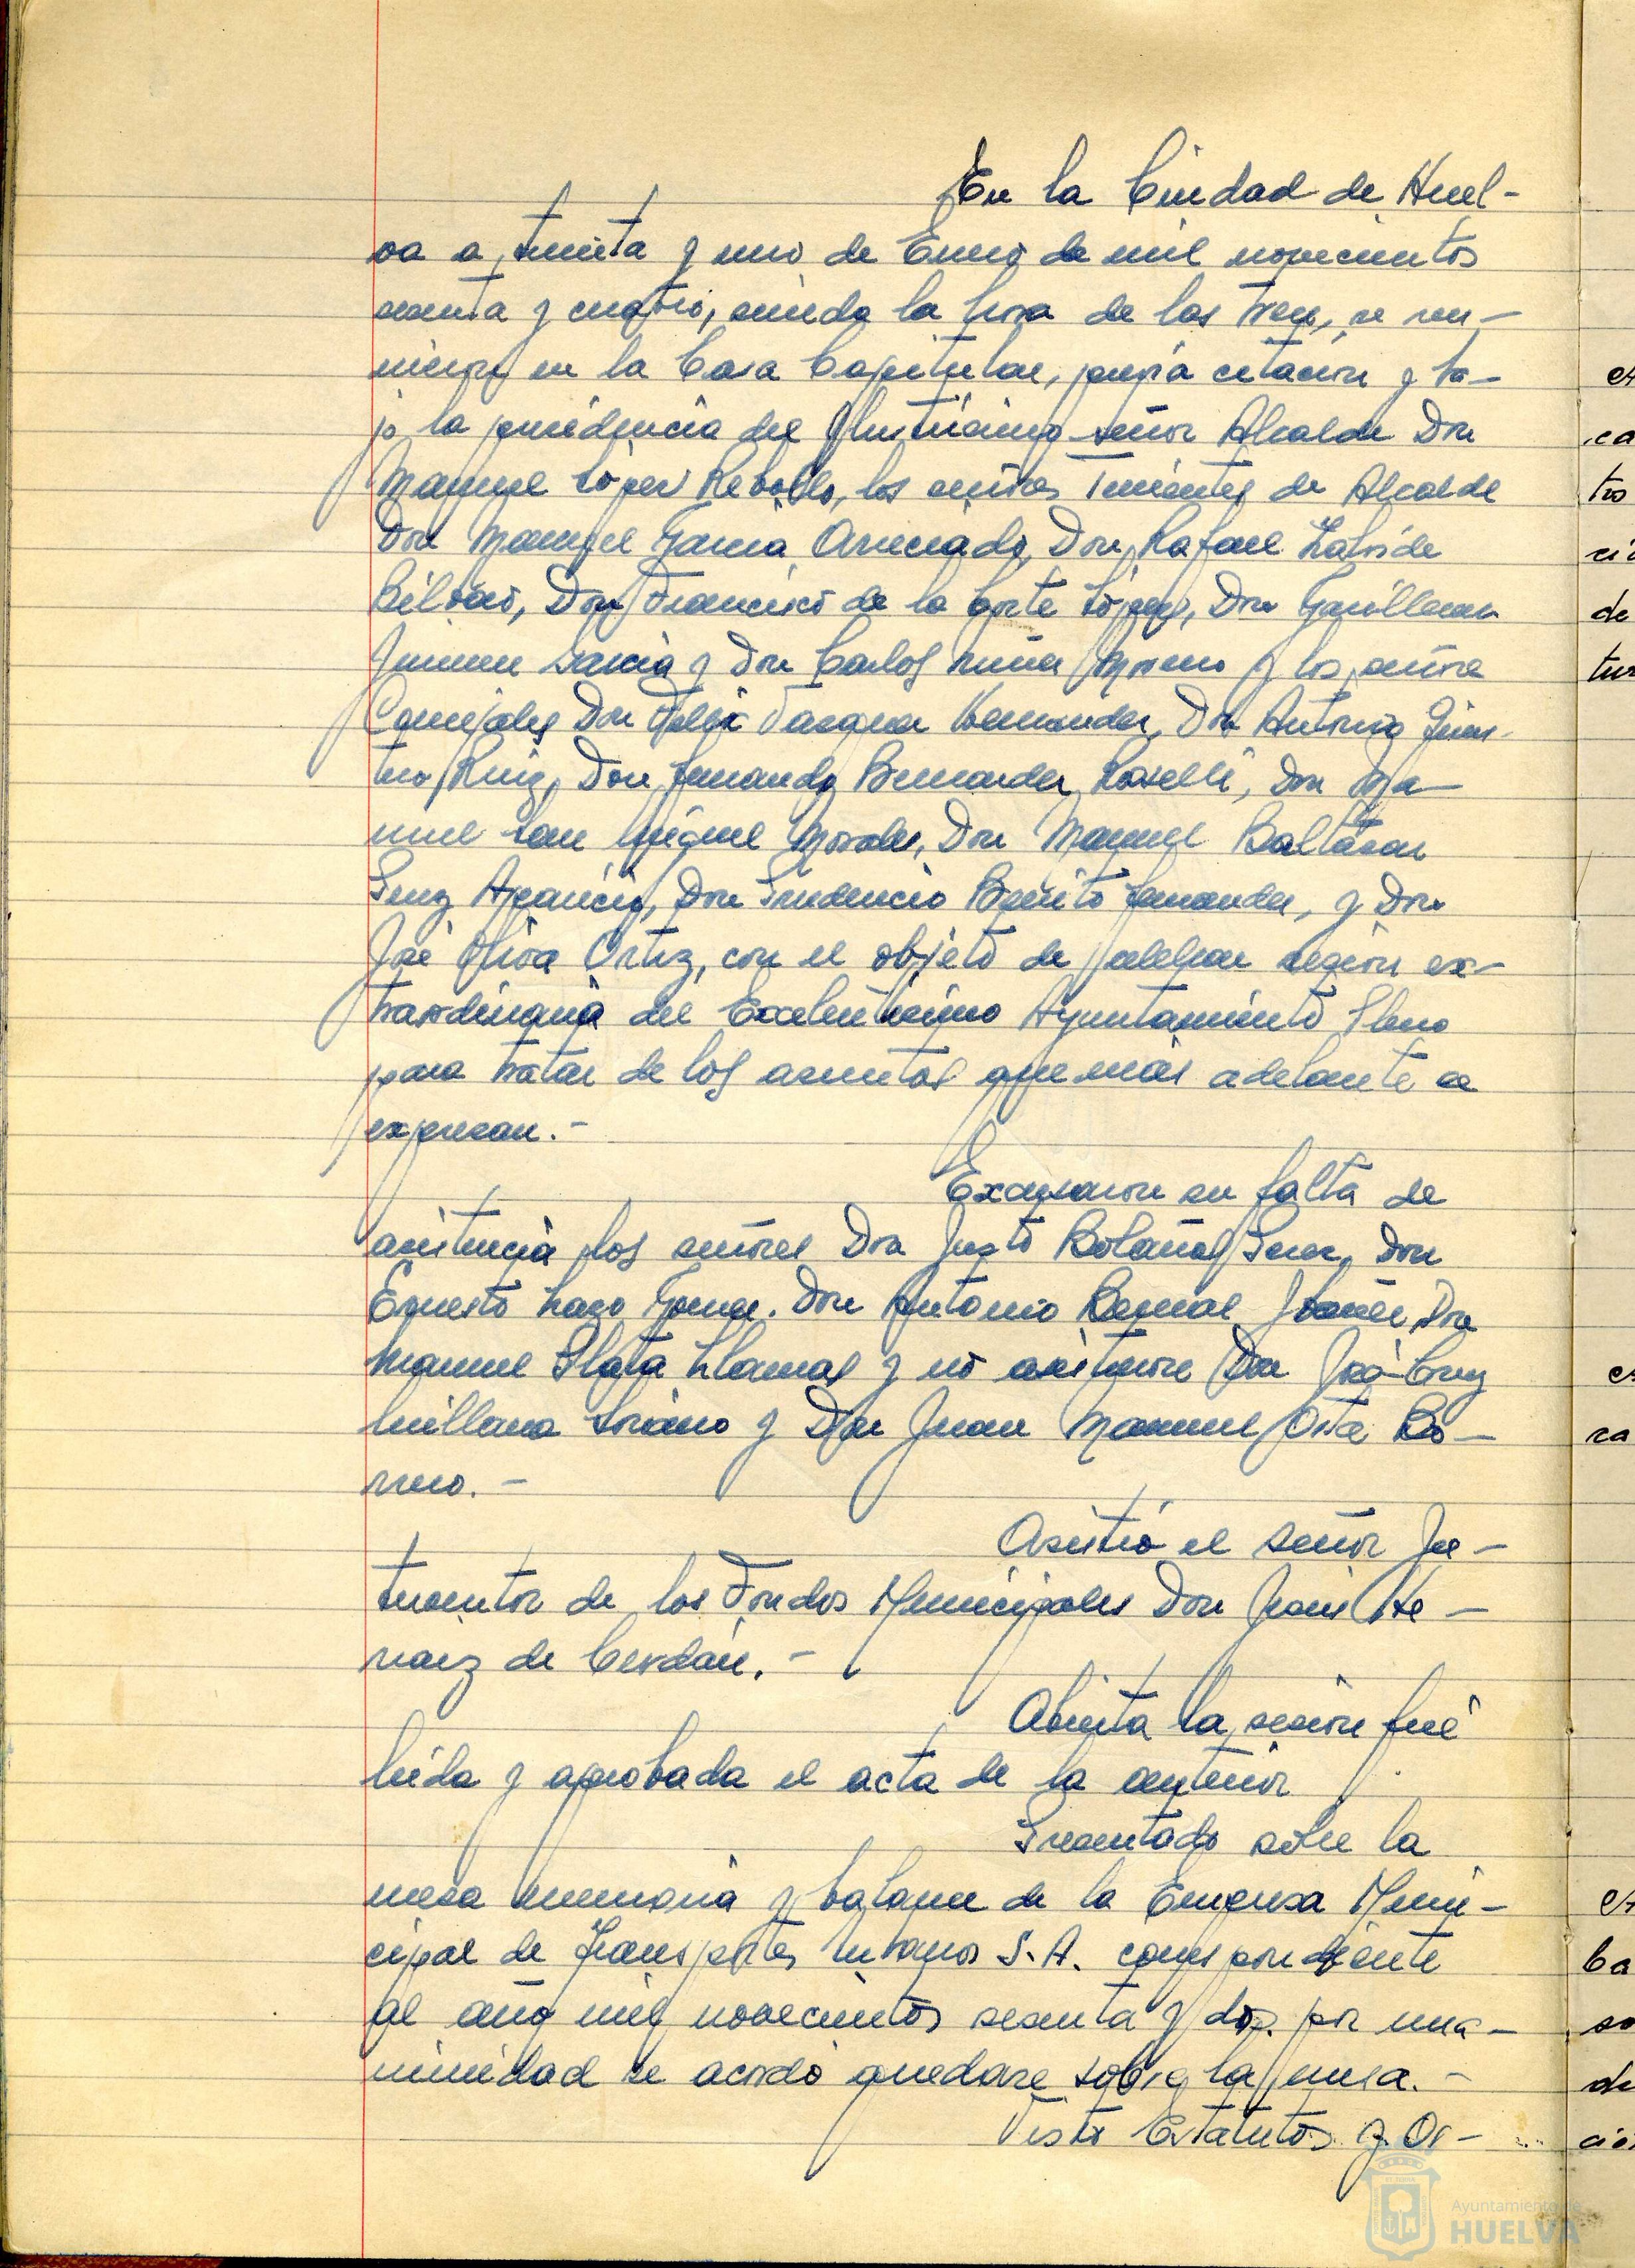 En la Ciudad de Huel-
va a treinta y uno de Enero de mil novecientos
sesenta y cuatro, siendo la hora de las trece, se reu-
nieron en la Casa Capitular, previa citación y ba-
jo la presidencia del Ilustrísimo señor Alcalde Don
Manuel López Rebollo, los señores Tenientes de Alcalde
Don Manuel García Arreciado, Don Rafael Zalvide
Bilbao, Don Francisco de la Corte López, Don Guillermo
Jimenez García y Don Carlos Nuñez Moreno y los señores
Concejales Don Felix Vazquez Hernandez, Don Antonio Gines-
tro Ruiz, Don Fernando Bermudez Roselli, Don Ma-
nuel San Miguel Morales, Don Manuel Baltasar
Senz Aparicio, Don Prudencio Benito Fernandez, y Don
José Oliva Ortiz, con el objeto de celebrar sesión ex-
traordinaria del Excelentísimo Ayuntamiento Pleno
para tratar de los asuntos que más adelante se
expresan.-
Excusaron su falta de
asistencia los señores Don Justo Bolaños Perez, Don
Ernesto Lazo Gomez, Don Antonio Bernal Ibañez, Don
Manuel Plata Llamas y no asistieron Don José Cruz
Millana Soriano y Don Juan Manuel Orta Bo-
rrero.-
Asistió el señor In-
terventor de los Fondos Municipales Don Jesús He-
rraiz de Cerdán.-
Abierta la sesión fué
leida y aprobada el acta de la anterior
Presentado sobre la
mesa memoria y balance de la Empresa Muni-
cipal de Transportes Urbanos S.A. correspondiente
al año mil novecientos sesenta y dos, por una-
nimidad se acordó quedase sobre la mesa.-
Visto Estatutos y Or-
Ayuntamiento de
HUELVA